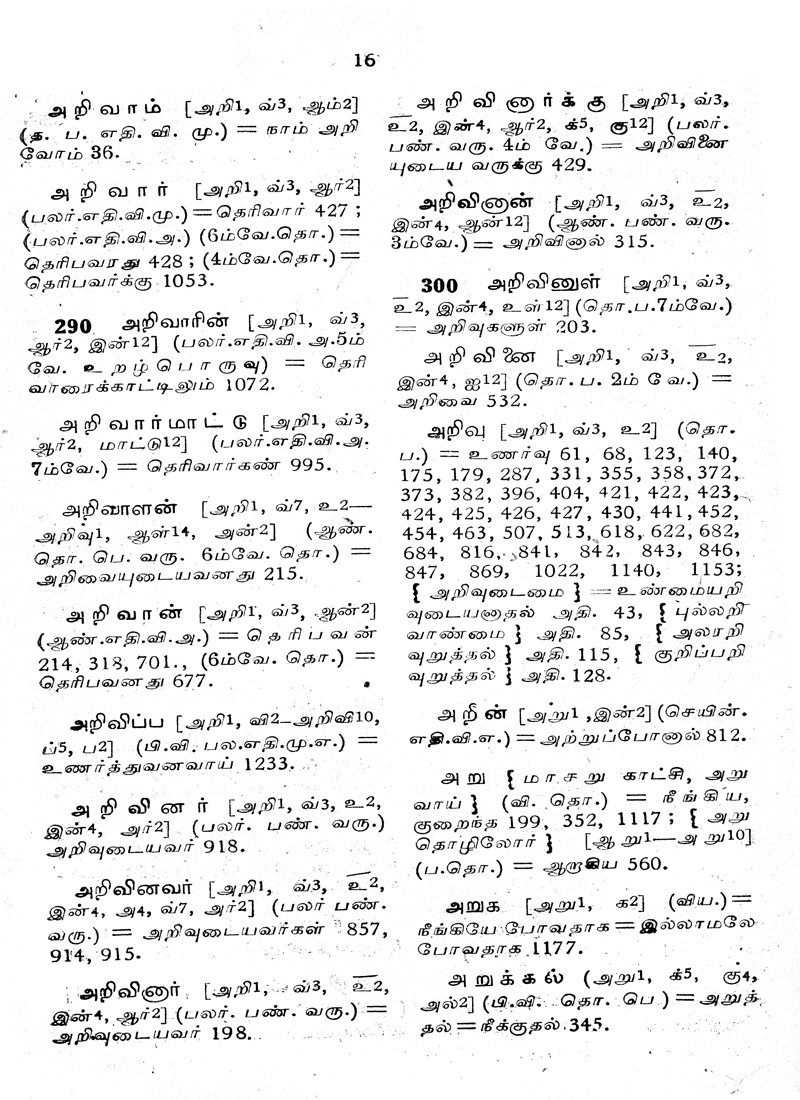 16
அறிவாம் [அறி1, வ்3, ஆம்2]
(த. ப. எதி. வி. மு.) = நாம் அறி
வோம் 36.
அறிவார் [அறி1, வ்3, ஆர்2]
(பலர்.எதி.வி.மு.)=தெரிவார் 427 ;
(பலர்.எதி.வி.அ.) (6ம்வே.தொ.)=
தெரிபவரது 428 ; (4ம்வே.தொ.)=
தெரிபவர்க்கு 1053.
290 அறிவாரின் [அறி1, வ்3,
ஆர்2, இன்12] (பலர்.எதி.வி. அ.5ம்
வே. உறழ்பொருவு) = தெரி
வாரைக்காட்டிலும் 1072.
அறிவார்மாட்டு [அறி1, வ்3,
ஆர்2, மாட்டு12] (பலர்.எதி.வி.அ.
7ம்வே.) = தெரிவார்கண் 995.
அறிவாளன் [அறி1, வ்7, உ2—
அறிவு1, ஆள்14, அன்2] (ஆண்.
தொ. பெ. வரு. 6ம்வே. தொ.) =
அறிவையுடையவனது 215.
அறிவான் [அறி1, வ்3, ஆன்2]
(ஆண்.எதி.வி.அ.) = தெரிபவன்
214, 318, 701., (6ம்வே. தொ.) =
தெரிபவனது 677.
அறிவிப்ப [அறி1, வி2–அறிவி10,
ப்5, ப2] (பி.வி. பல.எதி.மு.எ.) =
உணர்த்துவனவாய் 1233.
அறிவினர் [அறி1, வ்3, உ2,
இன்4, அர்2] (பலர். பண். வரு.)
அறிவுடையவர் 918.
அறிவினவர் [அறி1, வ்3, உ2,
இன்4, அ4, வ்7, அர்2] (பலர் பண்.
வரு.) = அறிவுடையவர்கள் 857,
914, 915.
அறிவினார் [அறி1, வ்3, உ2,
இன்4, ஆர்2] (பலர். பண். வரு.) =
அறிவுடையவர் 198.
அறிவினார்க்கு [அறி1, வ்3,
உ2, இன்4, ஆர்2, க்5, கு12] (பலர்.
பண். வரு. 4ம் வே.) = அறிவினை
யுடையவருக்கு 429.
அறிவினான் [அறி1, வ்3, உ2,
இன்4, ஆன்12] (ஆண். பண். வரு.
3ம்வே.) = அறிவினால் 315.
300 அறிவினுள் [அறி1, வ்3,
உ2, இன்4, உள்12] (தொ.ப.7ம்வே.)
= அறிவுகளுள் 203.
அறிவினை [அறி1, வ்3, உ2,
இன்4, ஐ12] (தொ. ப. 2ம் வே.) =
அறிவை 532.
அறிவு [அறி1, வ்3, உ2] (தொ.
ப.) = உணர்வு 61, 68, 123, 140,
175, 179, 287, 331, 355, 358, 372,
373, 382, 396, 404, 421, 422, 423,
424, 425, 426, 427, 430, 441, 452,
454, 463, 507, 513, 618, 622, 682,
684, 816, 841, 842, 843, 846,
847, 869, 1022, 1140, 1153;
{ அறிவுடைமை } = உண்மையறி
வுடையனாதல் அதி. 43, { புல்லறி
வாண்மை } அதி. 85, { அலரறி
வுறுத்தல் } அதி. 115, { குறிப்பறி
வுறுத்தல் } அதி. 128.
அறின் [அற்று1 ,இன்2] (செயின்.
எதி.வி.எ.) = அற்றுப்போனால் 812.
அறு { மாசறு காட்சி, அறு
வாய் } (வி. தொ.) = நீங்கிய,
குறைந்த 199, 352, 1117 ; { அறு
தொழிலோர் } [ஆறு1—அறு10]
(ப.தொ.) = ஆறாகிய 560.
அறுக [அறு1, க2] (விய.)=
நீங்கியே போவதாக = இல்லாமலே
போவதாக 1177.
அறுக்கல் (அறு1, க்5, கு4,
அல்2] (பி.வி. தொ. பெ ) = அறுத்
தல் = நீக்குதல் 345.